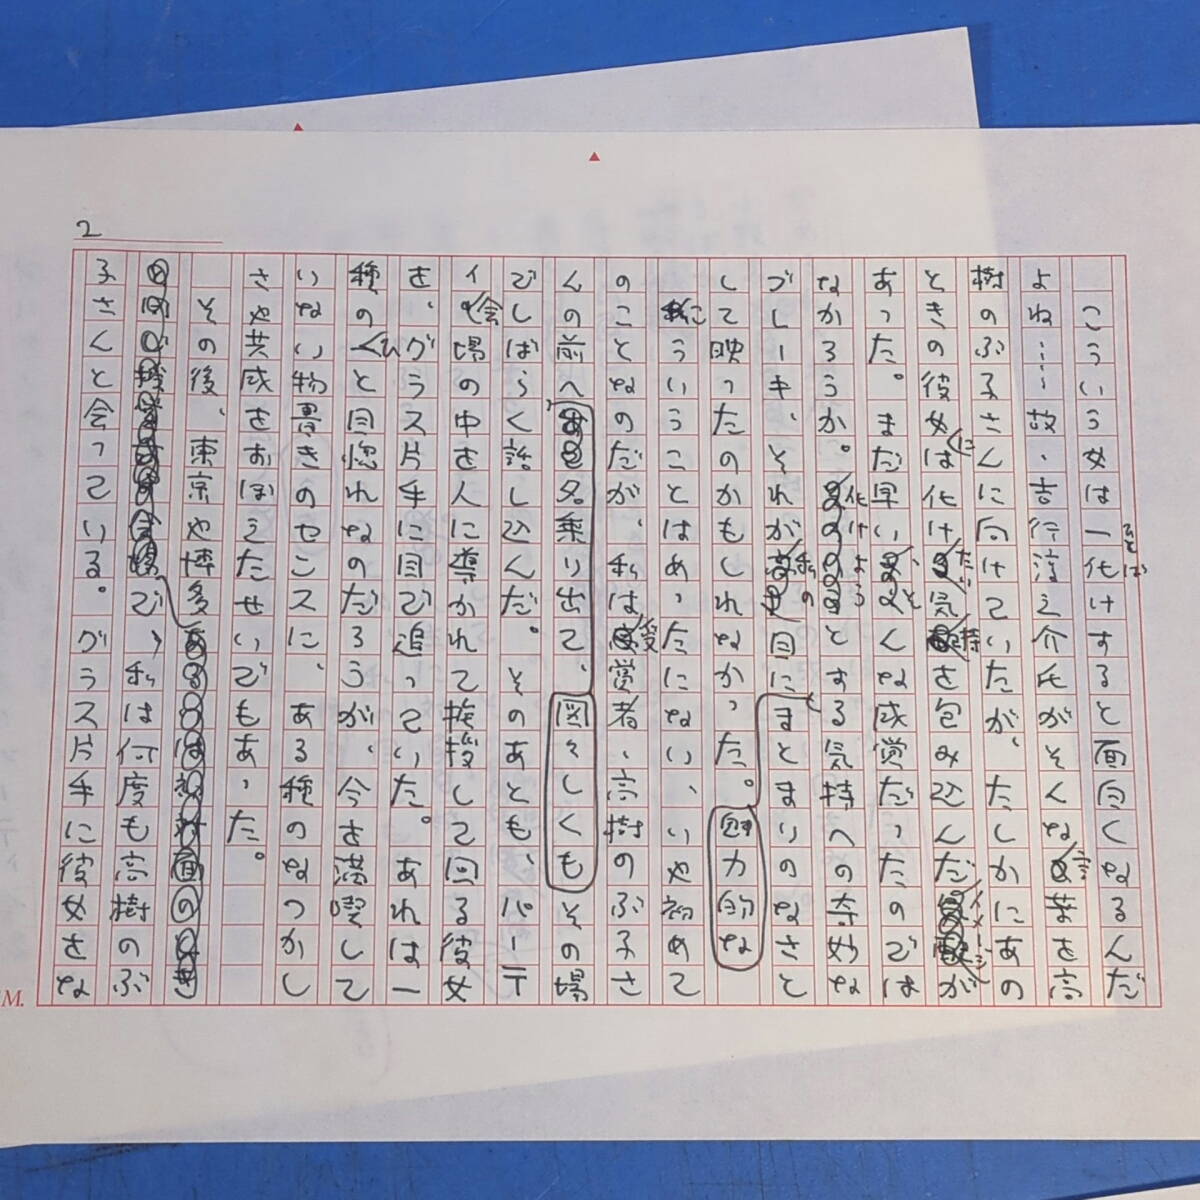 2
こういう女は一化けすると面白くなるんだ
ひとば
よね……故・吉行淳之介氏がそんな言葉を高
樹のぶ子さんに向けていたが、たしかにあの
ときの彼女にはく化けたい気持を包み込んだイメージが
あった。まだ早い、そんな感覚だったのでは
なかろうか。化けようとする気持への奇妙な
ブレーキ、それが私の目に魅力的なまとまりのなさと
して映ったのかもしれなかった。
こういうことはめったにない、いや初めて
のことなのだが、私は授賞者・高樹のぶ子さ
んの前へ、図々しくも名乗り出て、その場
でしばらく話し込んだ。そのあとも、パーテ
イ会場の中を人に導かれて挨拶して回る彼女
を、グラス片手に目で追っていた。あれは一
種のひと目惚れなのだろうが、今を満喫して
いない物書きのセンスに、ある種のなつかし
さや共感をおぼえたせいでもあった。
その後、東京や博多
で、私は何度も高樹のぶ
子さんと会っている。グラス片手に彼女をな
M.